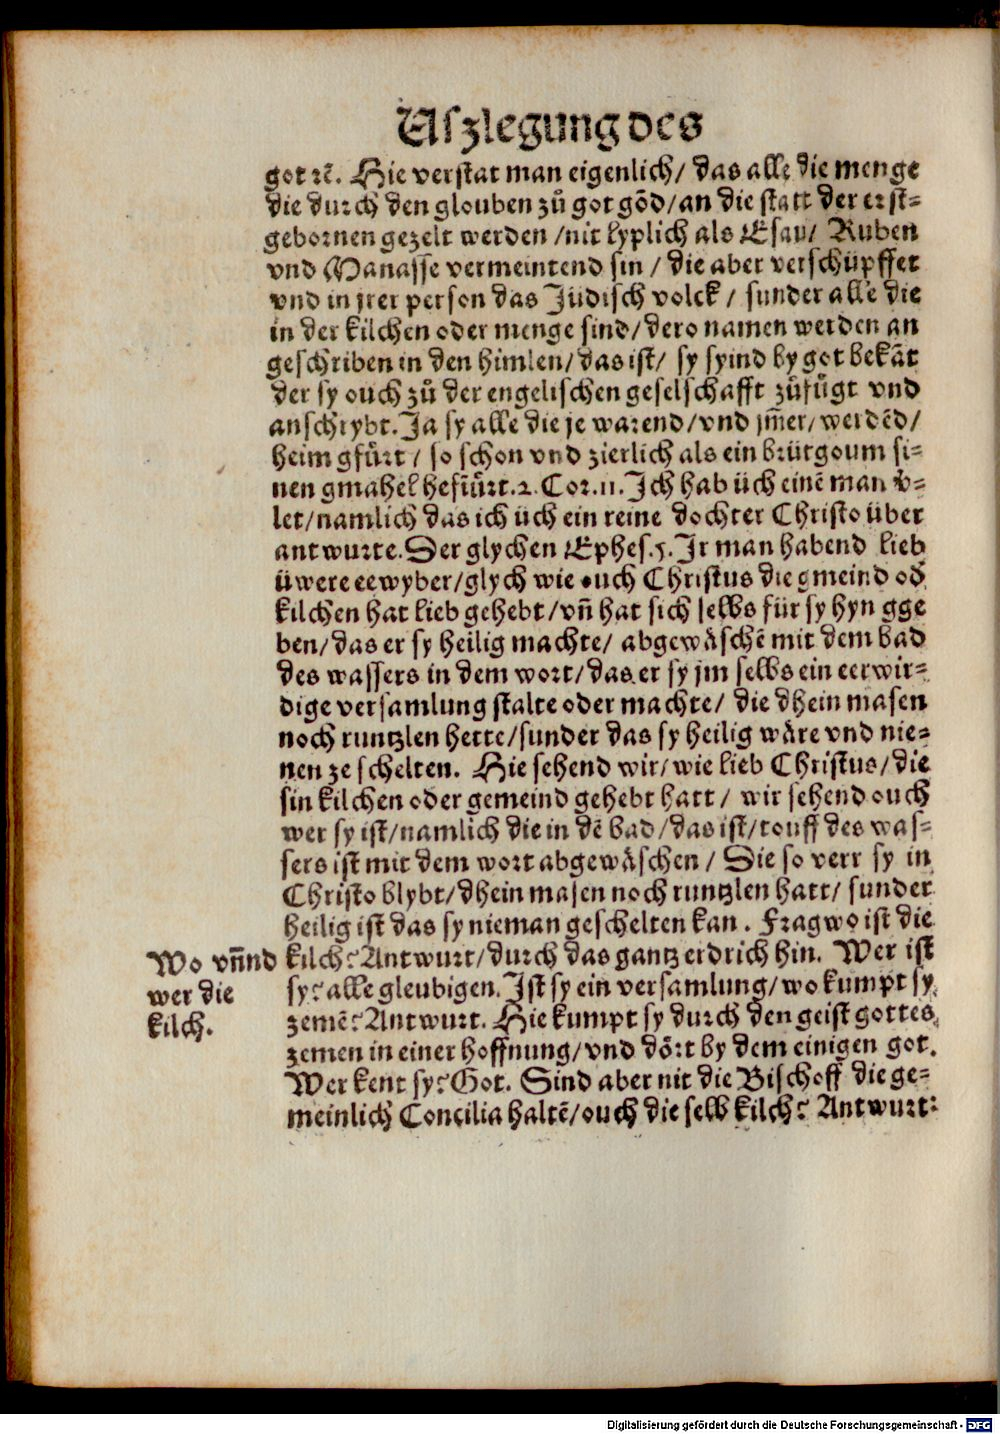 Uſzlegung des
got ꝛc̄. Hie verſtat man eigenlich/ das alle die menge
die durch den glouben zů got gōd/an die ſtatt der erſt⸗
gebornen gezelt werden /nit lyplich als Eſau/ Ruben
vnd Manaſſe vermeintend ſin / die aber verſchüpffet
vnd in jrer perſon das Jüdiſch volck / ſunder alle die
in der kilchen oder menge ſind/dero namen werden an
geſchriben in den himlen/das iſt/ ſy ſyind by got bekāt
der ſy ouch zů der engeliſchen geſelſchafft zůfügt vnd
anſchrybt. Ja ſy alle die je warend/vnd jm̄er/werdēd/
heim gfürt / ſo ſchon vnd zierlich als ein brütgoum ſi⸗
nen gmahel hefiürt. 2. Cor. 11. Jch hab üch einē man v̄⸗
let/namlich das ich üch ein reine dochter Chriſto über
antwurte. Der glychen Epheſ. 5. Jr man habend lieb
üwere eewyber/glych wie ouch Chriſtus die gmeind od̄
kilchen hat lieb gehebt/vn̄ hat ſich ſelbs für ſy hyn gge
ben/das er ſy heilig machte/ abgewäſchē mit dem bad
des waſſers in dem wort/das er ſy jm ſelbs ein eerwir⸗
dige verſamlung ſtalte oder machte/ die dhein maſen
noch runtzlen hette/ſunder das ſy heilig wäre vnd nie⸗
nen ze ſchelten. Hie ſehend wir/wie lieb Chriſtus/die
ſin kilchen oder gemeind gehebt hatt / wir ſehend ouch
wer ſy iſt/namlich die in dē bad/das iſt/touff des waſ⸗
ſers iſt mit dem wort abgewäſchen / Die ſo verr ſy in
Chriſto blybt/dhein maſen noch runtzlen hatt/ ſunder
heilig iſt das ſy nieman geſchelten kan. Frag wo iſt die
Wo vn̄nd
wer die
kilch.
kilch? Antwurt/durch das gantz erdrich hin. Wer iſt
ſy? alle gleubigen. Jſt ſy ein verſamlung/wo kumpt ſy
zemē? Antwurt. Hie kumpt ſy durch den geiſt gottes
zemen in einer hoffnung/vnd dört by dem einigen got.
Wer kent ſy? Got. Sind aber nit die Biſchoff die ge⸗
meinlich Concilia haltē/ouch die ſelb kilch? Antwurt:
Digitalisierung gefördert durch die Deutsche Forschungsgemeinschaft - DFG